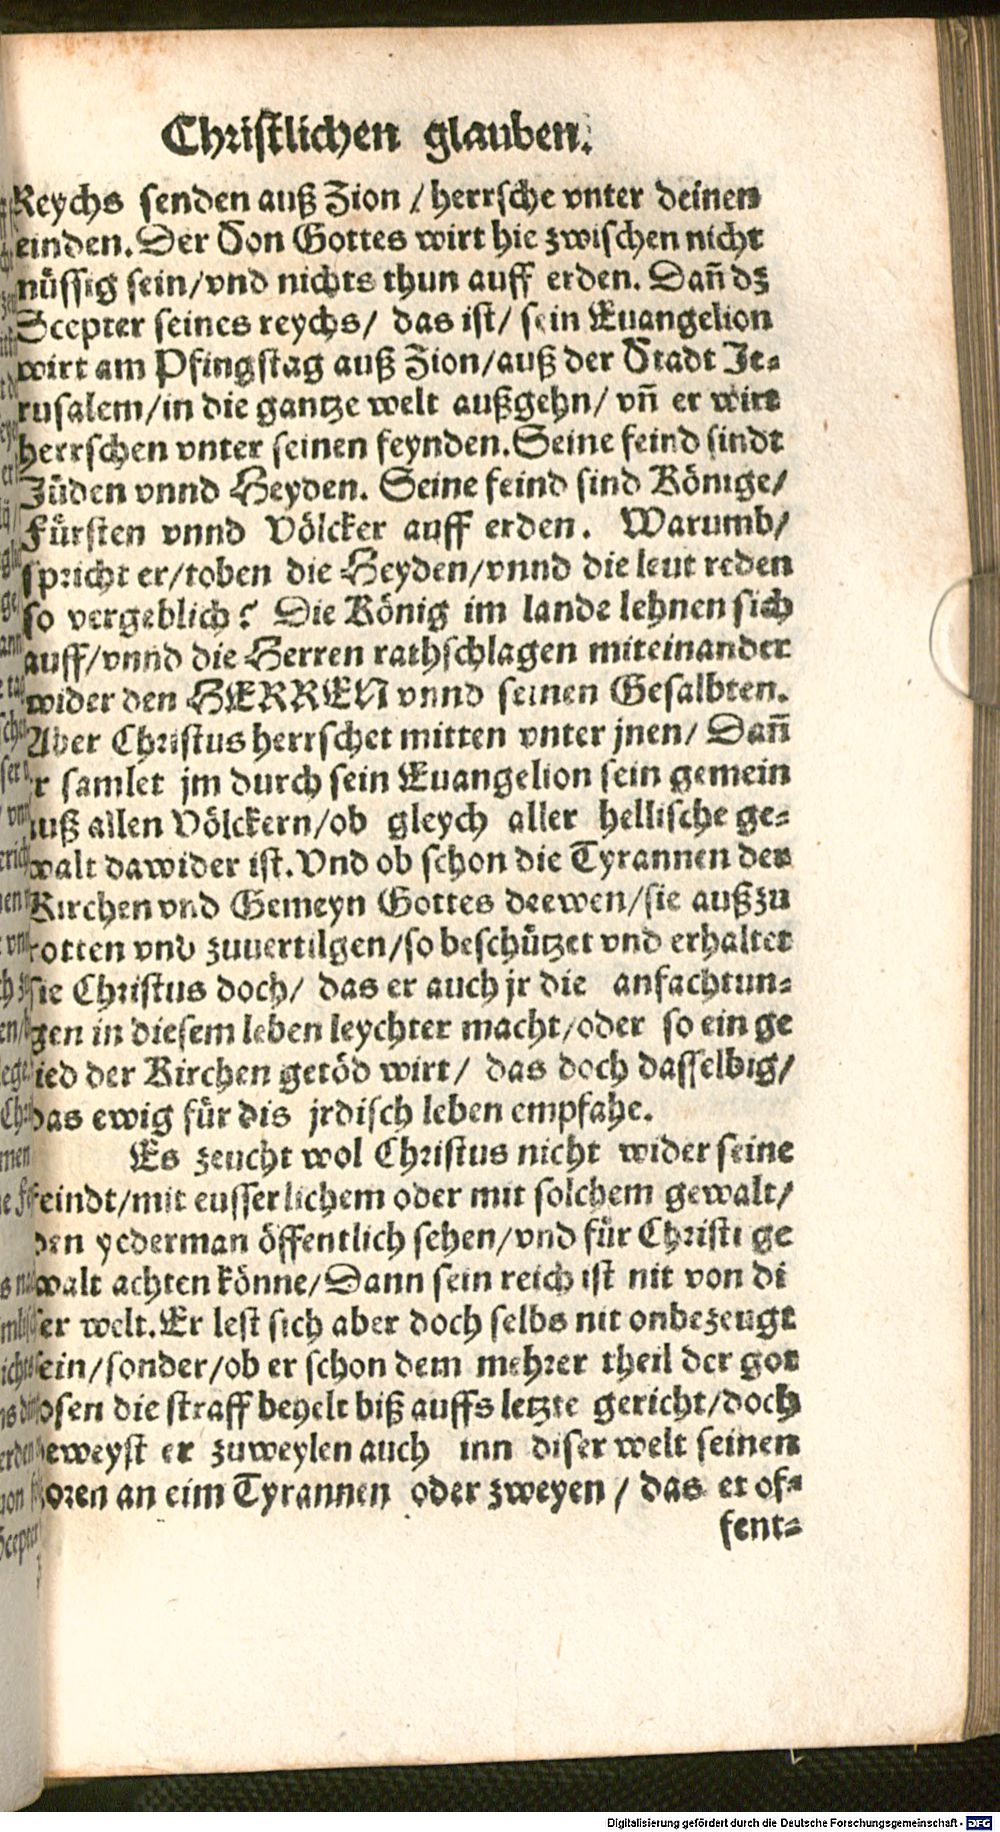 Christlichen glauben.
Reychs senden auß Zion / herrsche vnter deinen
einden. Der Son Gottes wirt hie zwischen nicht
müssig sein/vnd nichts thun auff erden. Dañ dz
Scepter seines reychs/ das ist/ sein Euangelion
wirt am Pfingstag auß Zion/auß der Stadt Je-
rusalem/in die gantze welt außgehn/ vñ er wirt
herrschen vnter seinen feynden. Seine feind sindt
Jüden vnnd Heyden. Seine feind sind Könige/
Fürsten vnnd Völcker auff erden. Warumb/
spricht er/toben die Heyden/vnnd die leut reden
so vergeblich? Die König im lande lehnen sich
auff/vnnd die Herren rathschlagen miteinander
wider den HERREN vnnd seinen Gesalbten.
Aber Christus herrschet mitten vnter jnen/ Dañ
r samlet jm durch sein Euangelion sein gemein
auß allen Völckern/ob gleych aller hellische ge-
walt dawider ist. Vnd ob schon die Tyrannen der
Kirchen vnd Gemeyn Gottes drewen/sie außzu
rotten vnd zuuertilgen/so beschützet vnd erhaltet
sie Christus doch/ das er auch jr die anfachtun-
gen in diesem leben leychter macht/oder so ein ge
ied der Kirchen getöd wirt/ das doch dasselbig/
das ewig für dis jrdisch leben empfahe.
Es zeucht wol Christus nicht wider seine
feindt/mit eusserlichem oder mit solchem gewalt/
den yederman öffentlich sehen/vnd für Christi ge
walt achten könne/Dann sein reich ist nit von di
ser welt. Er lest sich aber doch selbs nit onbezeugt
sein/sonder/ob er schon dem mehrer theil der got
osen die straff beyelt biß auffs letzte gericht/doch
beweyst er zuweylen auch inn diser welt seinen
zoren an eim Tyrannen oder zweyen / das er of-
fent-
Digitalisierung gefördert durch die Deutsche Forschungsgemeinschaft - DFG